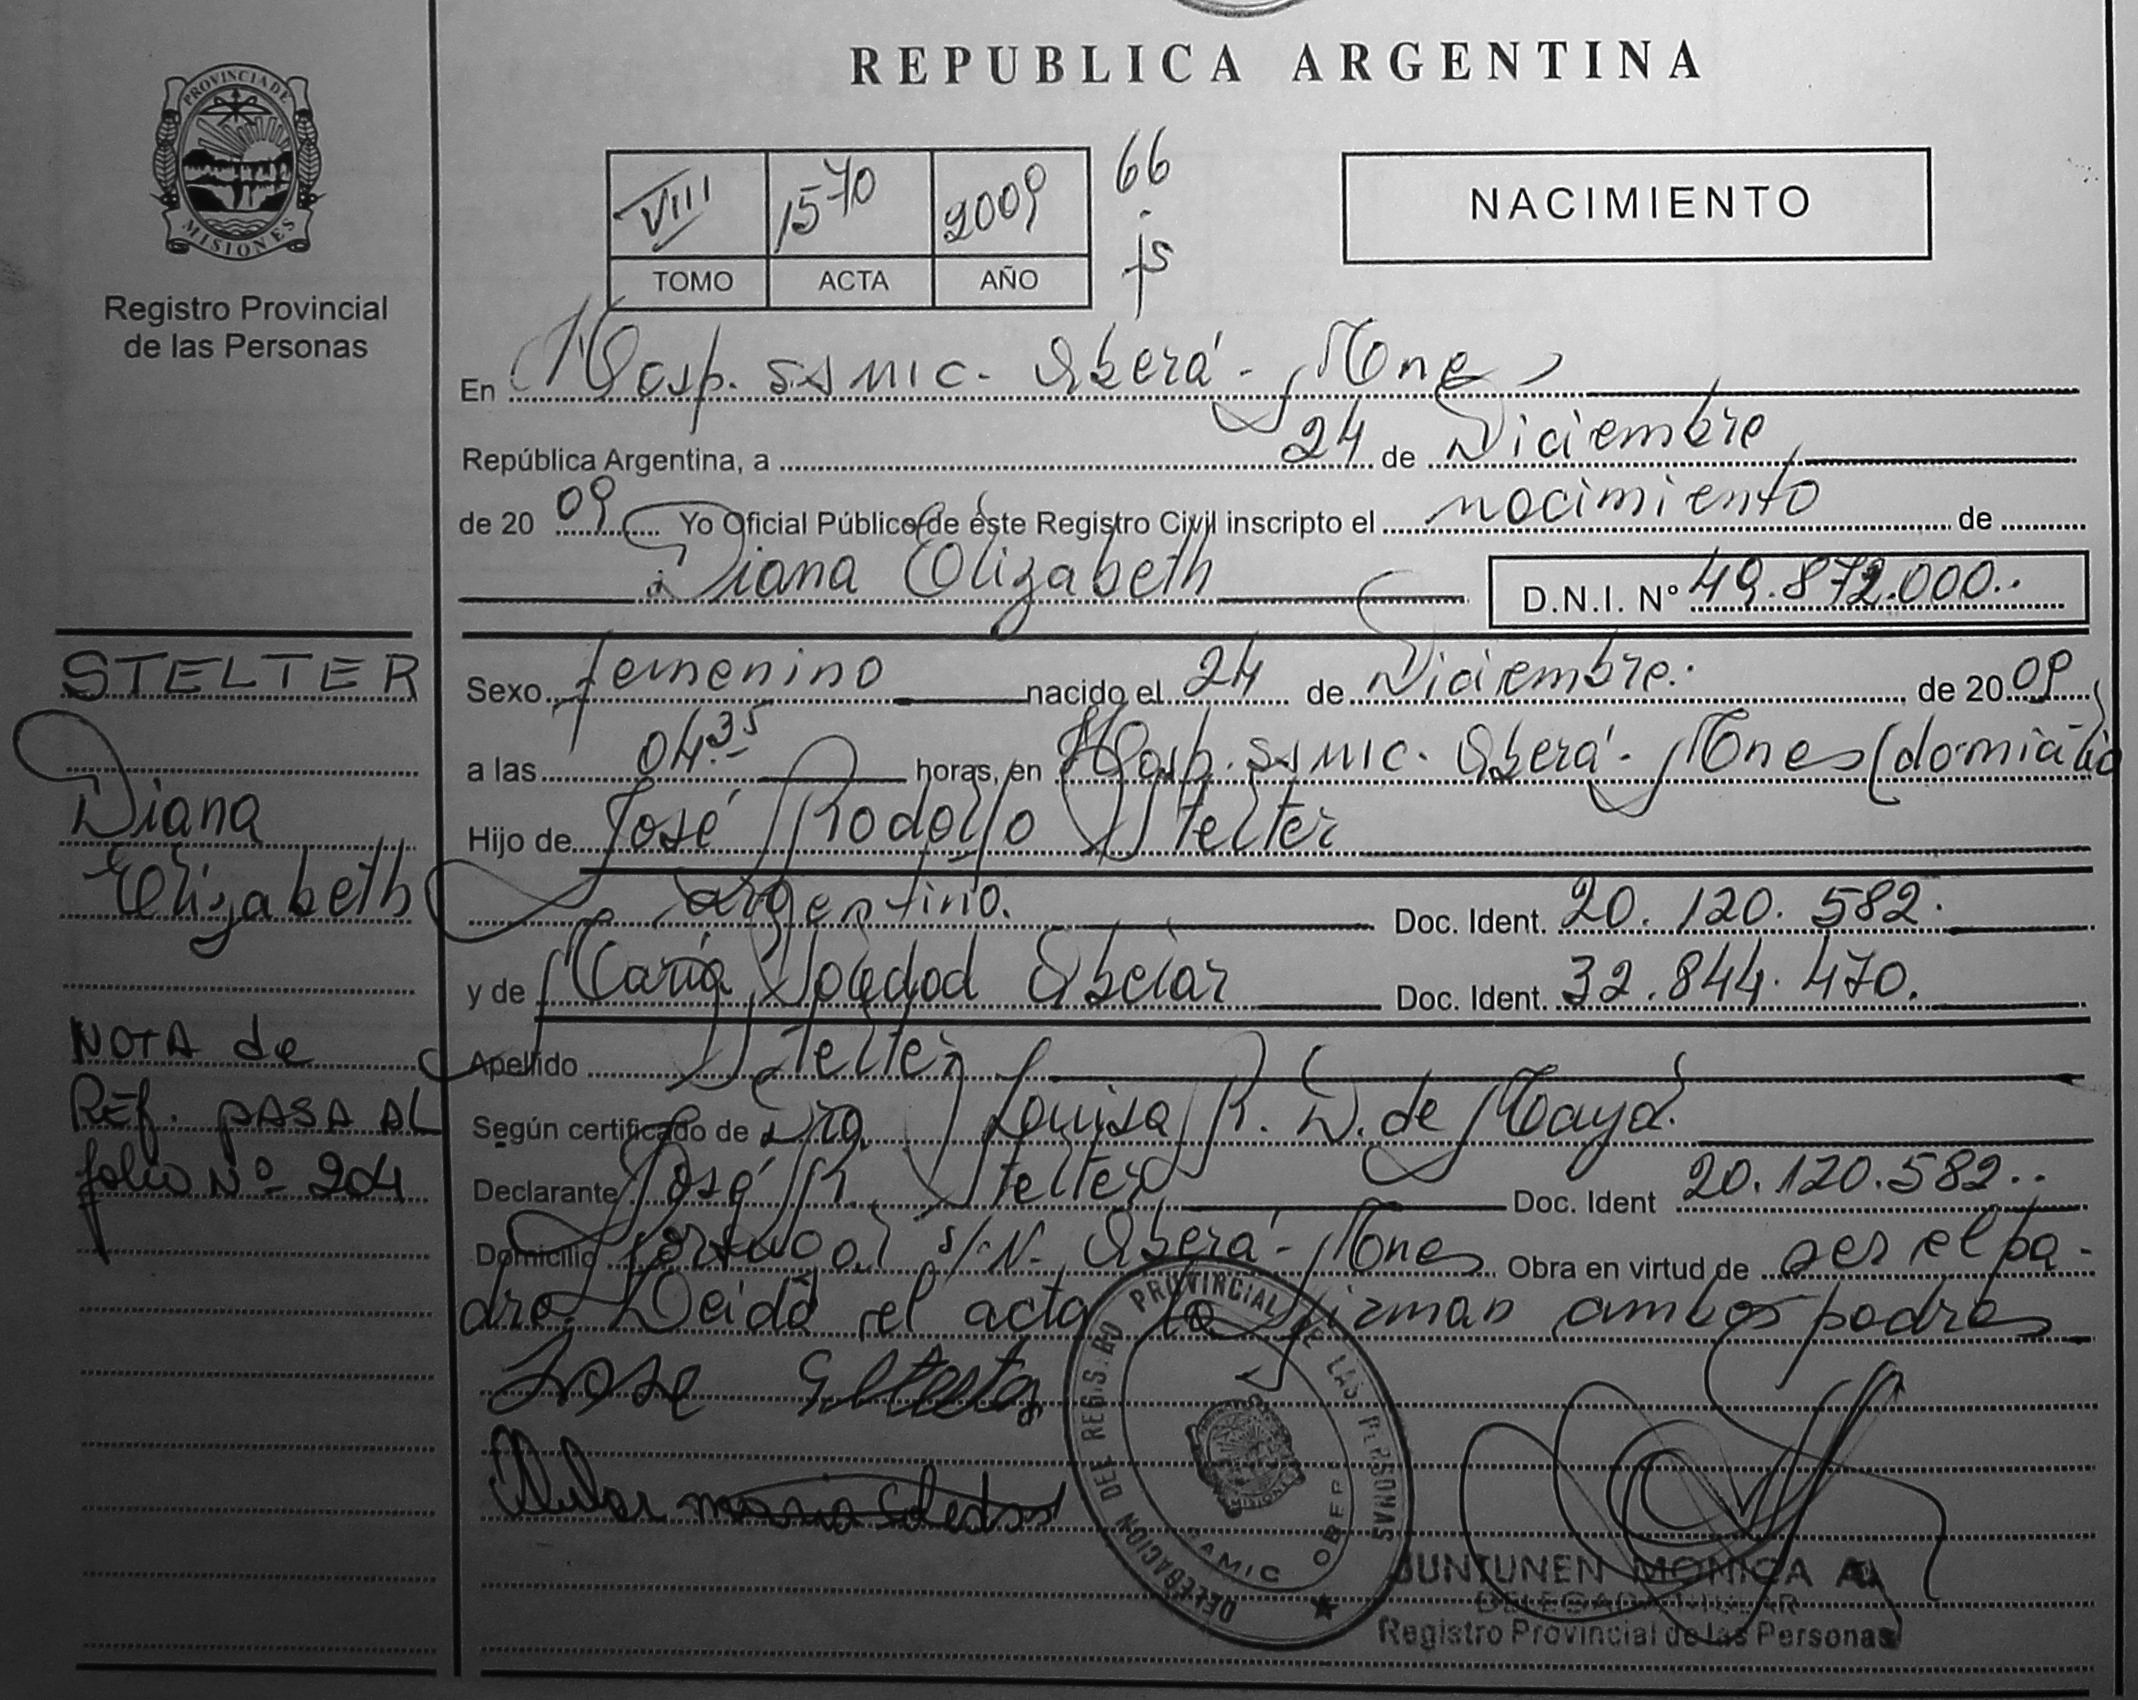 PROVINCIA DE
MISIONES
Registro Provincial
de las Personas
STELTER
Diana
Elizabeth
NOTA de
REf. pASA AL
folio Nº 204
REPUBLICA ARGENTINA
VIII 1570 2009 66
TOMO ACTA AÑO fs
NACIMIENTO
En Hosp. SAMIC. Oberá - Mnes
República Argentina, a 24 de Diciembre
de 20 09 Yo Oficial Público de éste Registro Civil inscripto el nacimiento de
Diana Elizabeth D.N.I. Nº 49.872.000..
Sexo femenino nacido el 24 de Diciembre. de 20 09
a las 04.35 horas, en Hosp. SAMIC. Oberá - Mnes (domicilio
Hijo de José Rodolfo Stelter
argentino. Doc. Ident. 20. 120. 582.
y de María Soledad Doc. Ident. 32. 844. 470.
Apellido Stelter
Según certificado de Dra Louisa R. D. de Maya.
Declarante José R. Stelter Doc. Ident 20.120.582..
Domicilio s/N. Oberá - Mnes Obra en virtud de ser el pa-
dre. Leida el acta la firman ambos padres
Jose
maria Soledad
DELEGACION DEL REGISTRO PROVINCIAL DE LAS PERSONAS
SAMIC OBERA
JUNTUNEN MONICA A.
DELEGADA TITULAR
Registro Provincial de las Personas